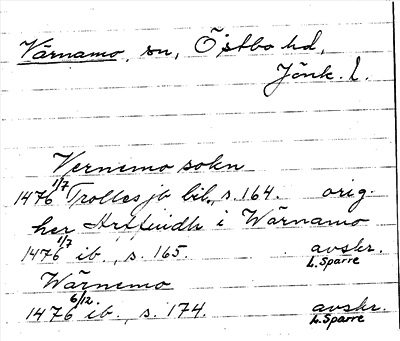 Värnamo, sn, Östbo hd,
Jönk. l.
Vernemo sokn
1476 1/7 Trolles jb bil., s. 164. orig.
her i Wärnamo
1476 1/7 ib., s. 165. avskr.
L. Sparre
Wärnemo
1476 6/12. ib., s. 174. avskr.
L. Sparre